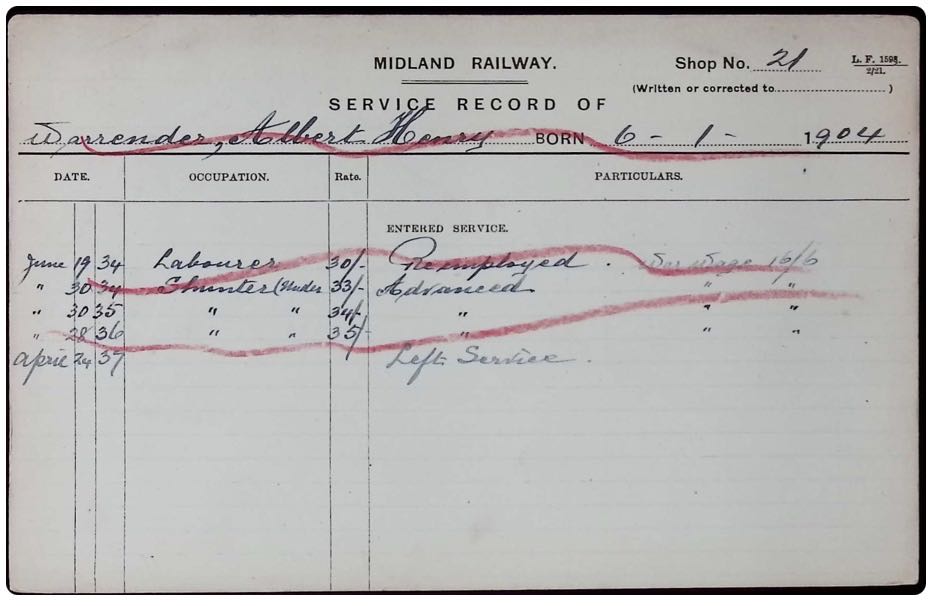 MIDLAND RAILWAY. Shop No. 21 L. F. 1598. 2/21.
(Written or corrected to )
SERVICE RECORD OF
Warrender, Albert Henry BORN 6 - 1 - 1904
DATE. OCCUPATION. Rate. PARTICULARS.
ENTERED SERVICE.
June 19 34 Labourer 30/- Reemployed. War Wage 16/6
" 30 34 Shunter (Under 33/- Advanced " "
" 30 35 " " 34/- " " "
" 28 36 " " 35/- " " "
April 24 37 Left Service.